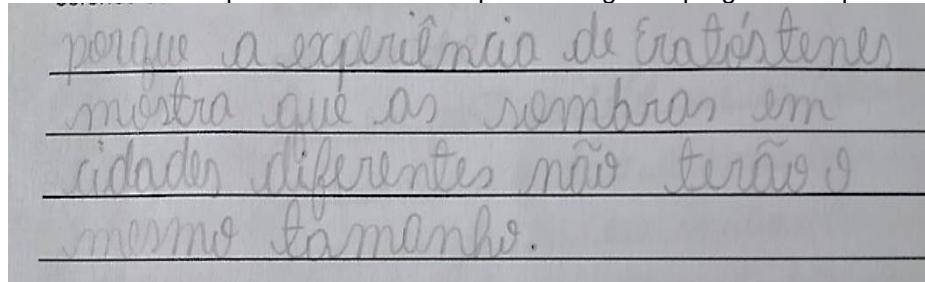 porque a experiência de Eratóstenes
mostra que as sombras em
cidades diferentes não terão o
mesmo tamanho.